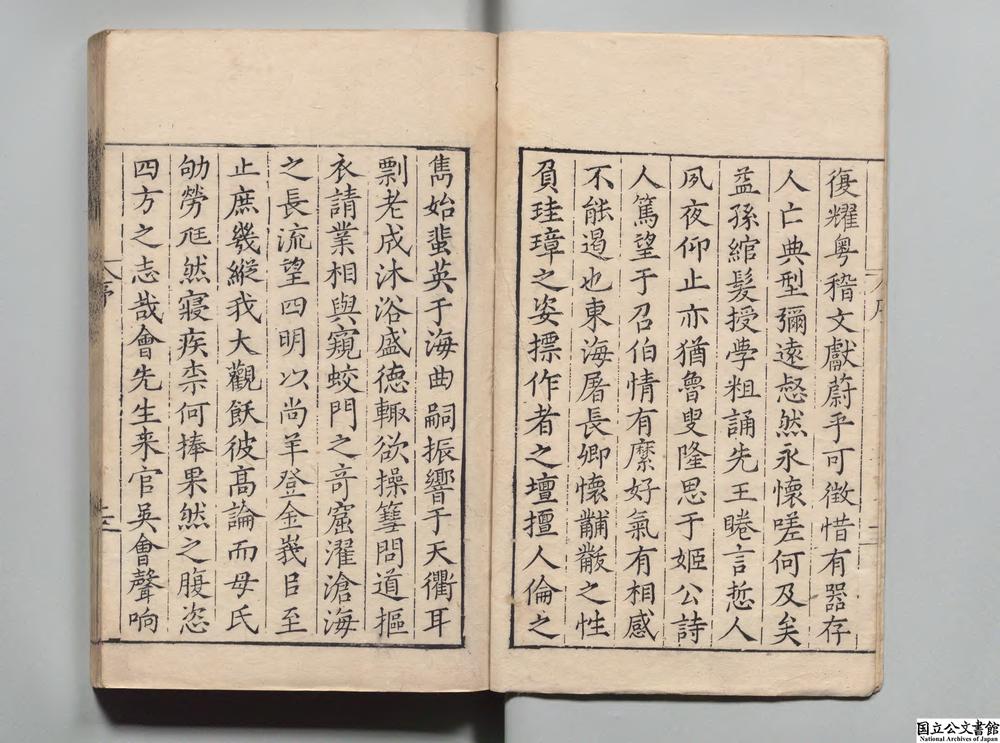 復耀粤稽文獻蔚乎可徵惜有器存
人亡典型彌遠惄然永懷嗟何及矣
益孫綰髮授學粗誦先王睠言悊人
夙夜仰止亦猶魯叟隆思于姬公詩
人篤望于召伯情有縻好氣有相感
不能遏也東海屠長卿懷黼黻之性
負珪璋之姿摽作者之壇擅人倫之
雋始蜚英于海曲嗣振響于天衢耳
剽老成沐浴盛德輙欲操篲問道摳
衣請業相與窺蛟門之竒窟濯滄海
之長流望四明以尚羊登金峩㠯至
止庶幾縱我大觀飫彼高論而母氏
劬勞尫然寢疾柰何捧果然之腹恣
四方之志哉會先生来官吳會聲响
序
三
国立公文書館
National Archives of Japan